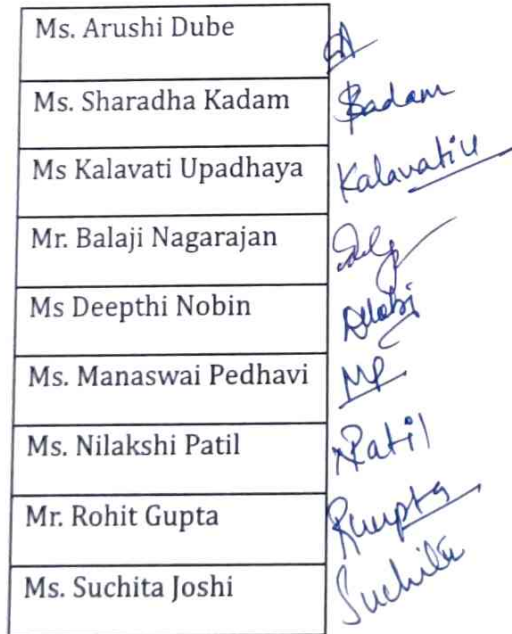 Ms. Arushi Dube
Ms. Sharadha Kadam Sadam
Ms Kalavati Upadhaya Kalavatiu
Mr. Balaji Nagarajan
Ms Deepthi Nobin
Ms. Manaswai Pedhavi MP
Ms. Nilakshi Patil NPatil
Mr. Rohit Gupta
Ms. Suchita Joshi Suchita